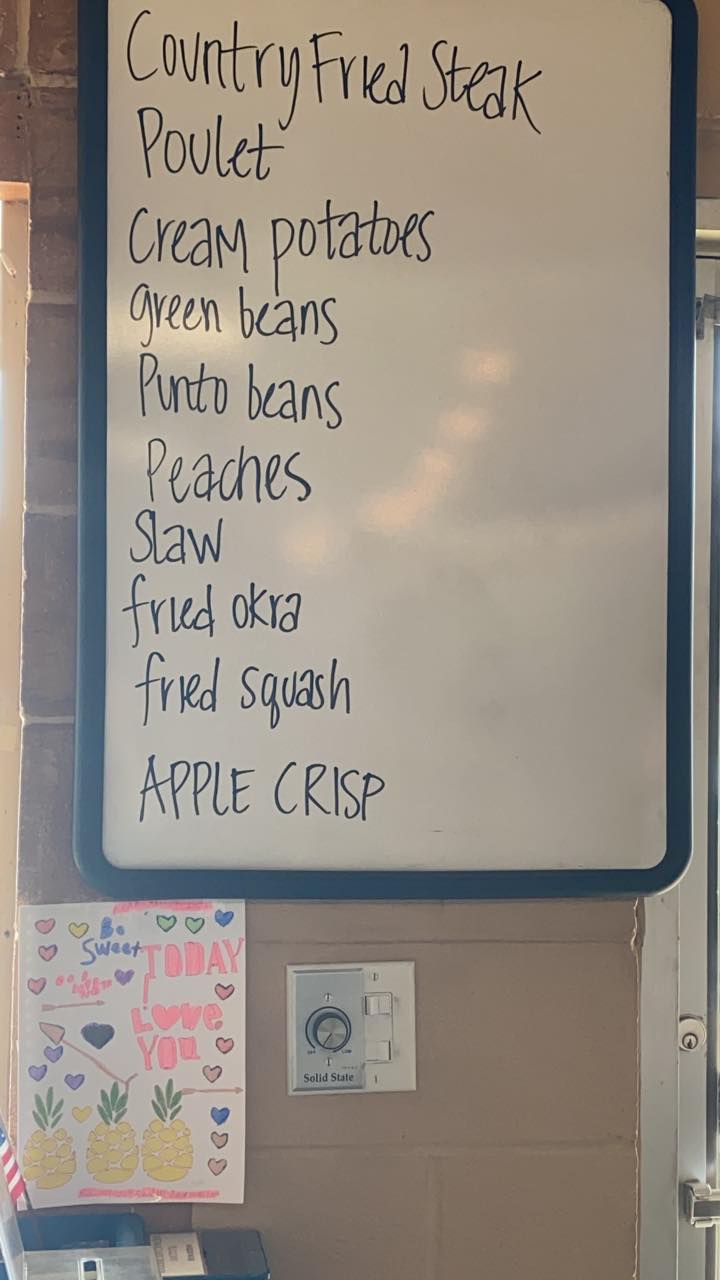 Country Fried Steak
Poulet
Cream potatoes
green beans
Pinto beans
Peaches
Slaw
fried okra
fried squash
APPLE CRISP
Be
Sweet TODAY
I
LOVE
YOU
OFF LOW
Solid State